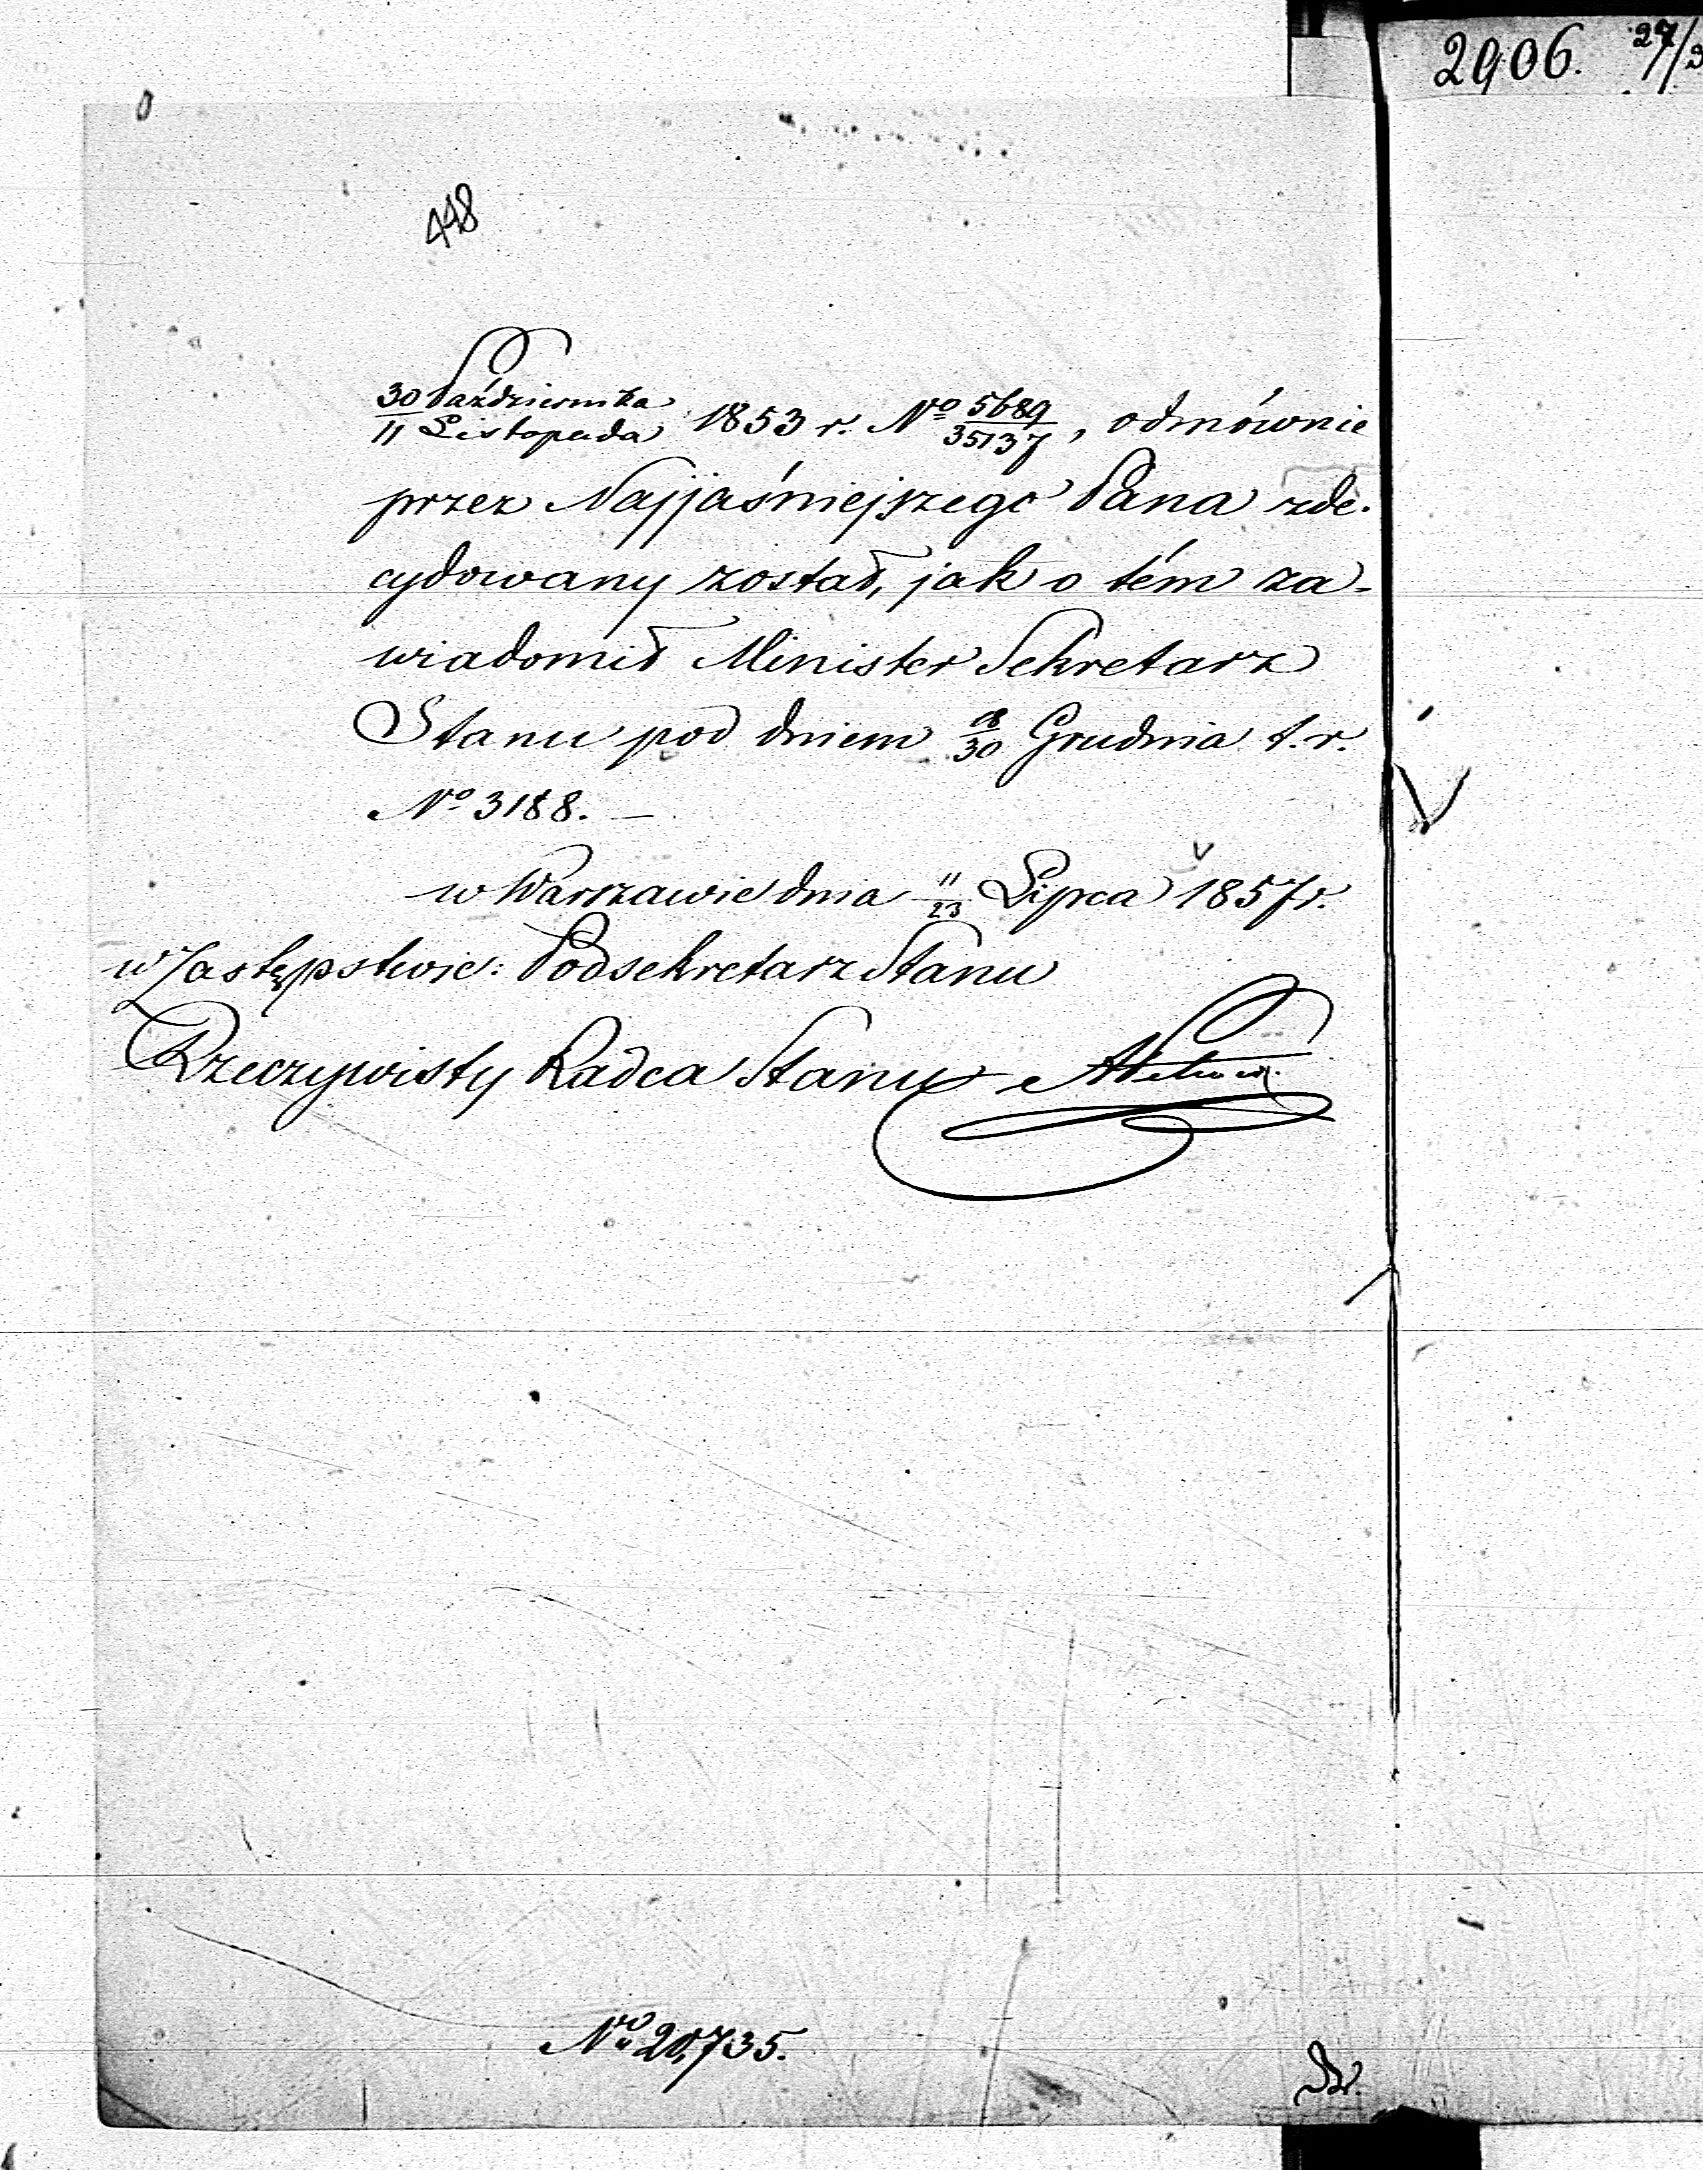 2906. 27/
448
30 Października / 11 Listopada 1853 r. No 5689/35137, odmównie
przez Najjaśniejszego Pana zde-
cydowany został, jak o tém za-
wiadomił Minister Sekretarz
Stanu pod dniem 18/30 Grudnia t. r.
No 3188. —
w Warszawie dnia 11/23 Lipca 1857 r.
w Zastępstwie: Podsekretarz Stanu
Rzeczywisty Radca Stanu
No 20,735.